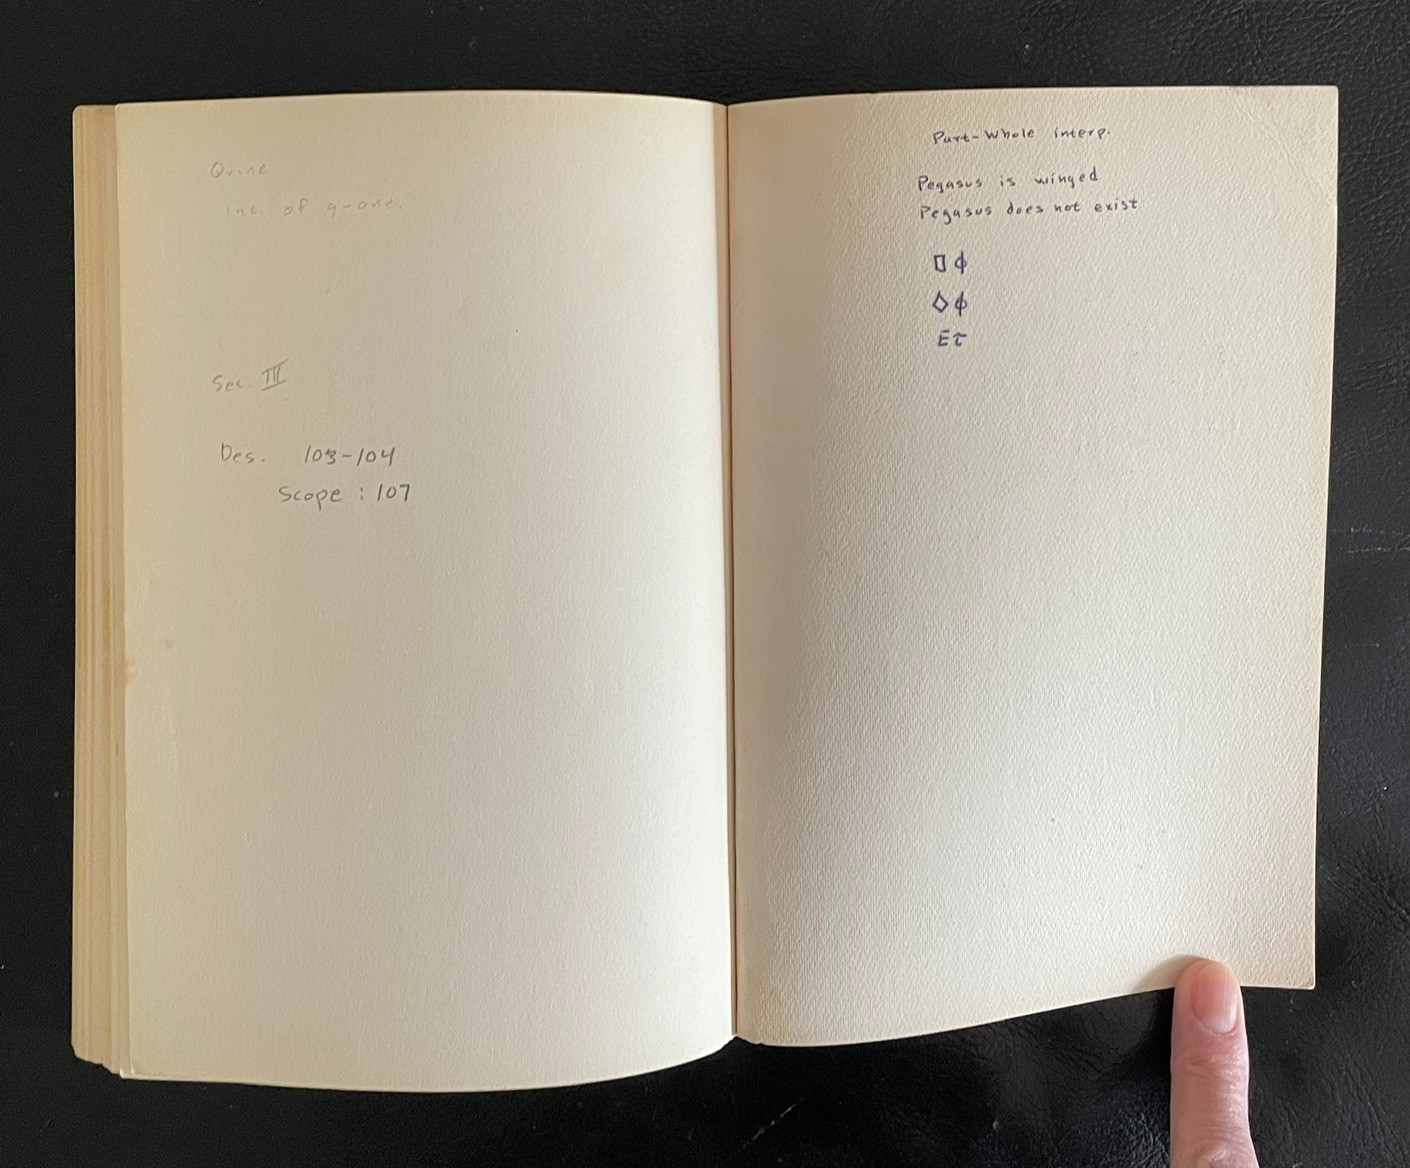 Quine
Int. of q-ont.
Sec. III
Des. 103-104
Scope : 107
Part-Whole interp.
Pegasus is winged
Pegasus does not exist
□ϕ
◇ϕ
Eτ